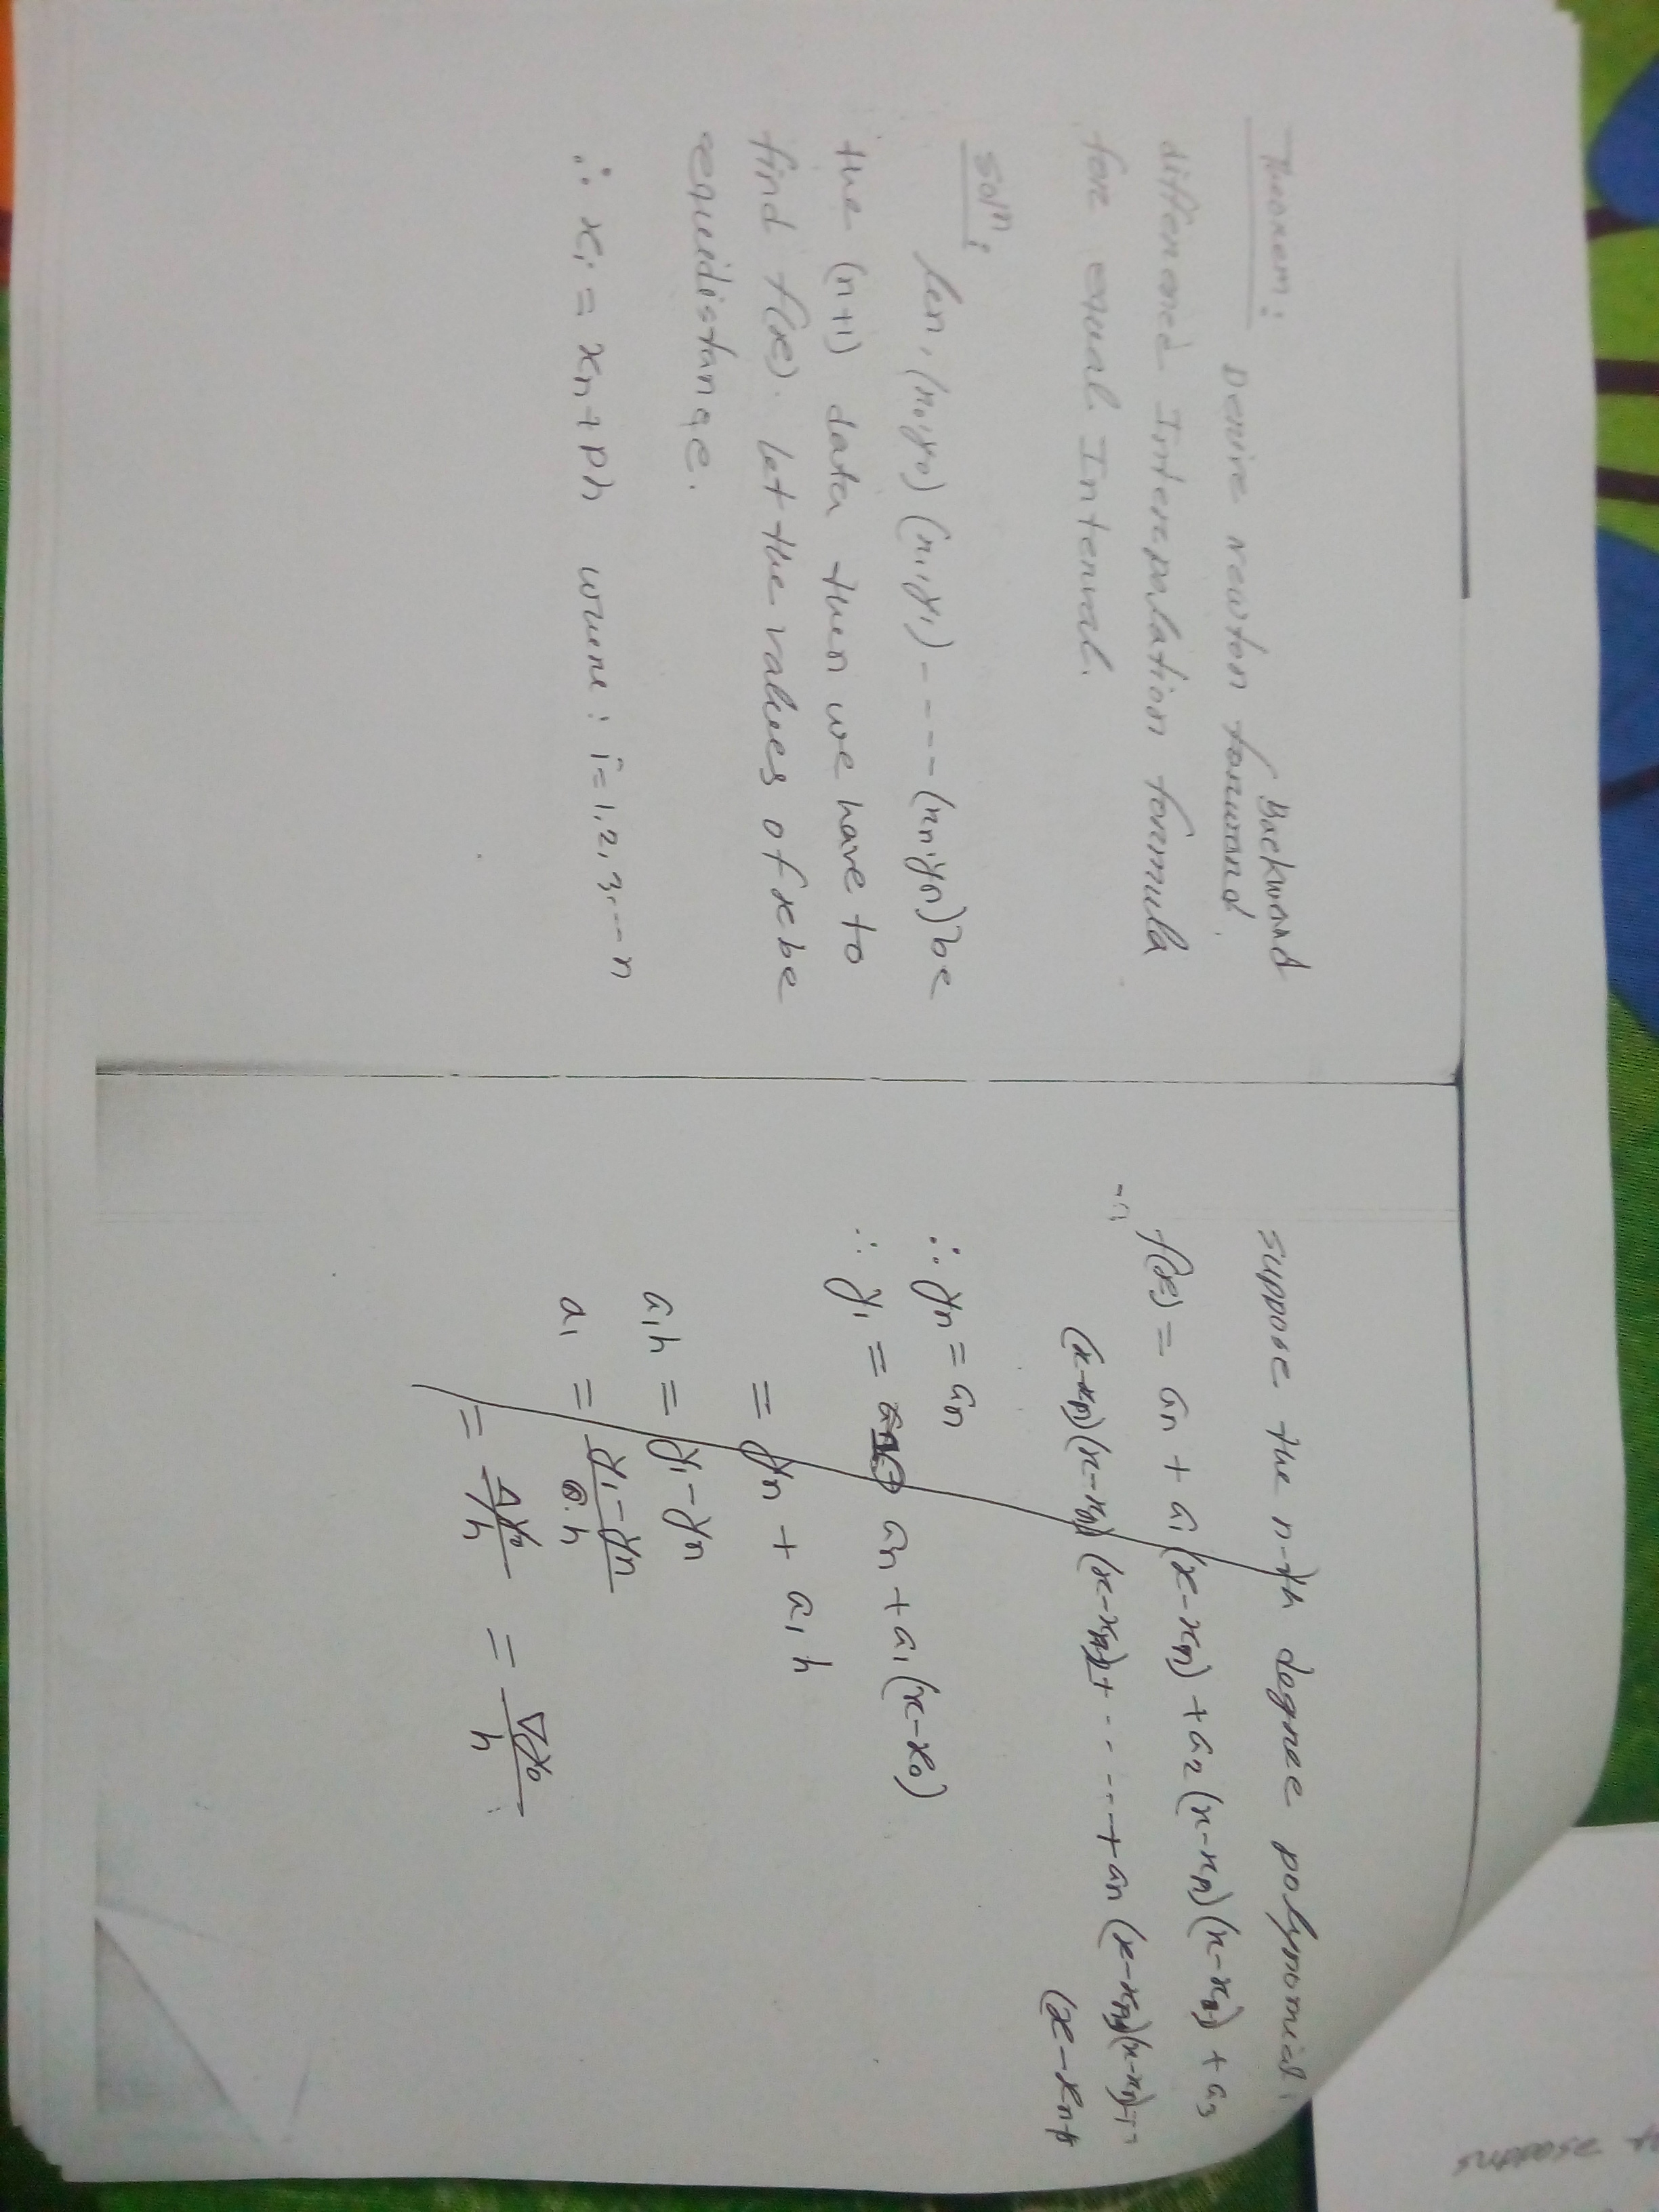 Theorem:
Derive newton forward Backward
difference Interpolation formula
for equal Interval.
soln:
(x0,y0) (x1,y1) ---- (xn,yn) be
the (n+1) data then we have to
find f(x). Let the values of x be
equidistance.
∴ xi = xn + ph where: i=1,2,3,---n
suppose the n-th degree polynomial:
f(x) = an + a1(x-xn) + a2(x-xn)(x-xn-1) + a3
(x-xn)(x-xn-1)(x-xn-2)+ ------+ an (x-xn)(x-xn-1)---
(x-xn-p
∴ yn = an
∴ y1 = an + a1(x-x0)
= yn + a1h
a1h = y1-yn
a1 = y1-yn/h
= Δy0/h = ∇y0/h
suppose